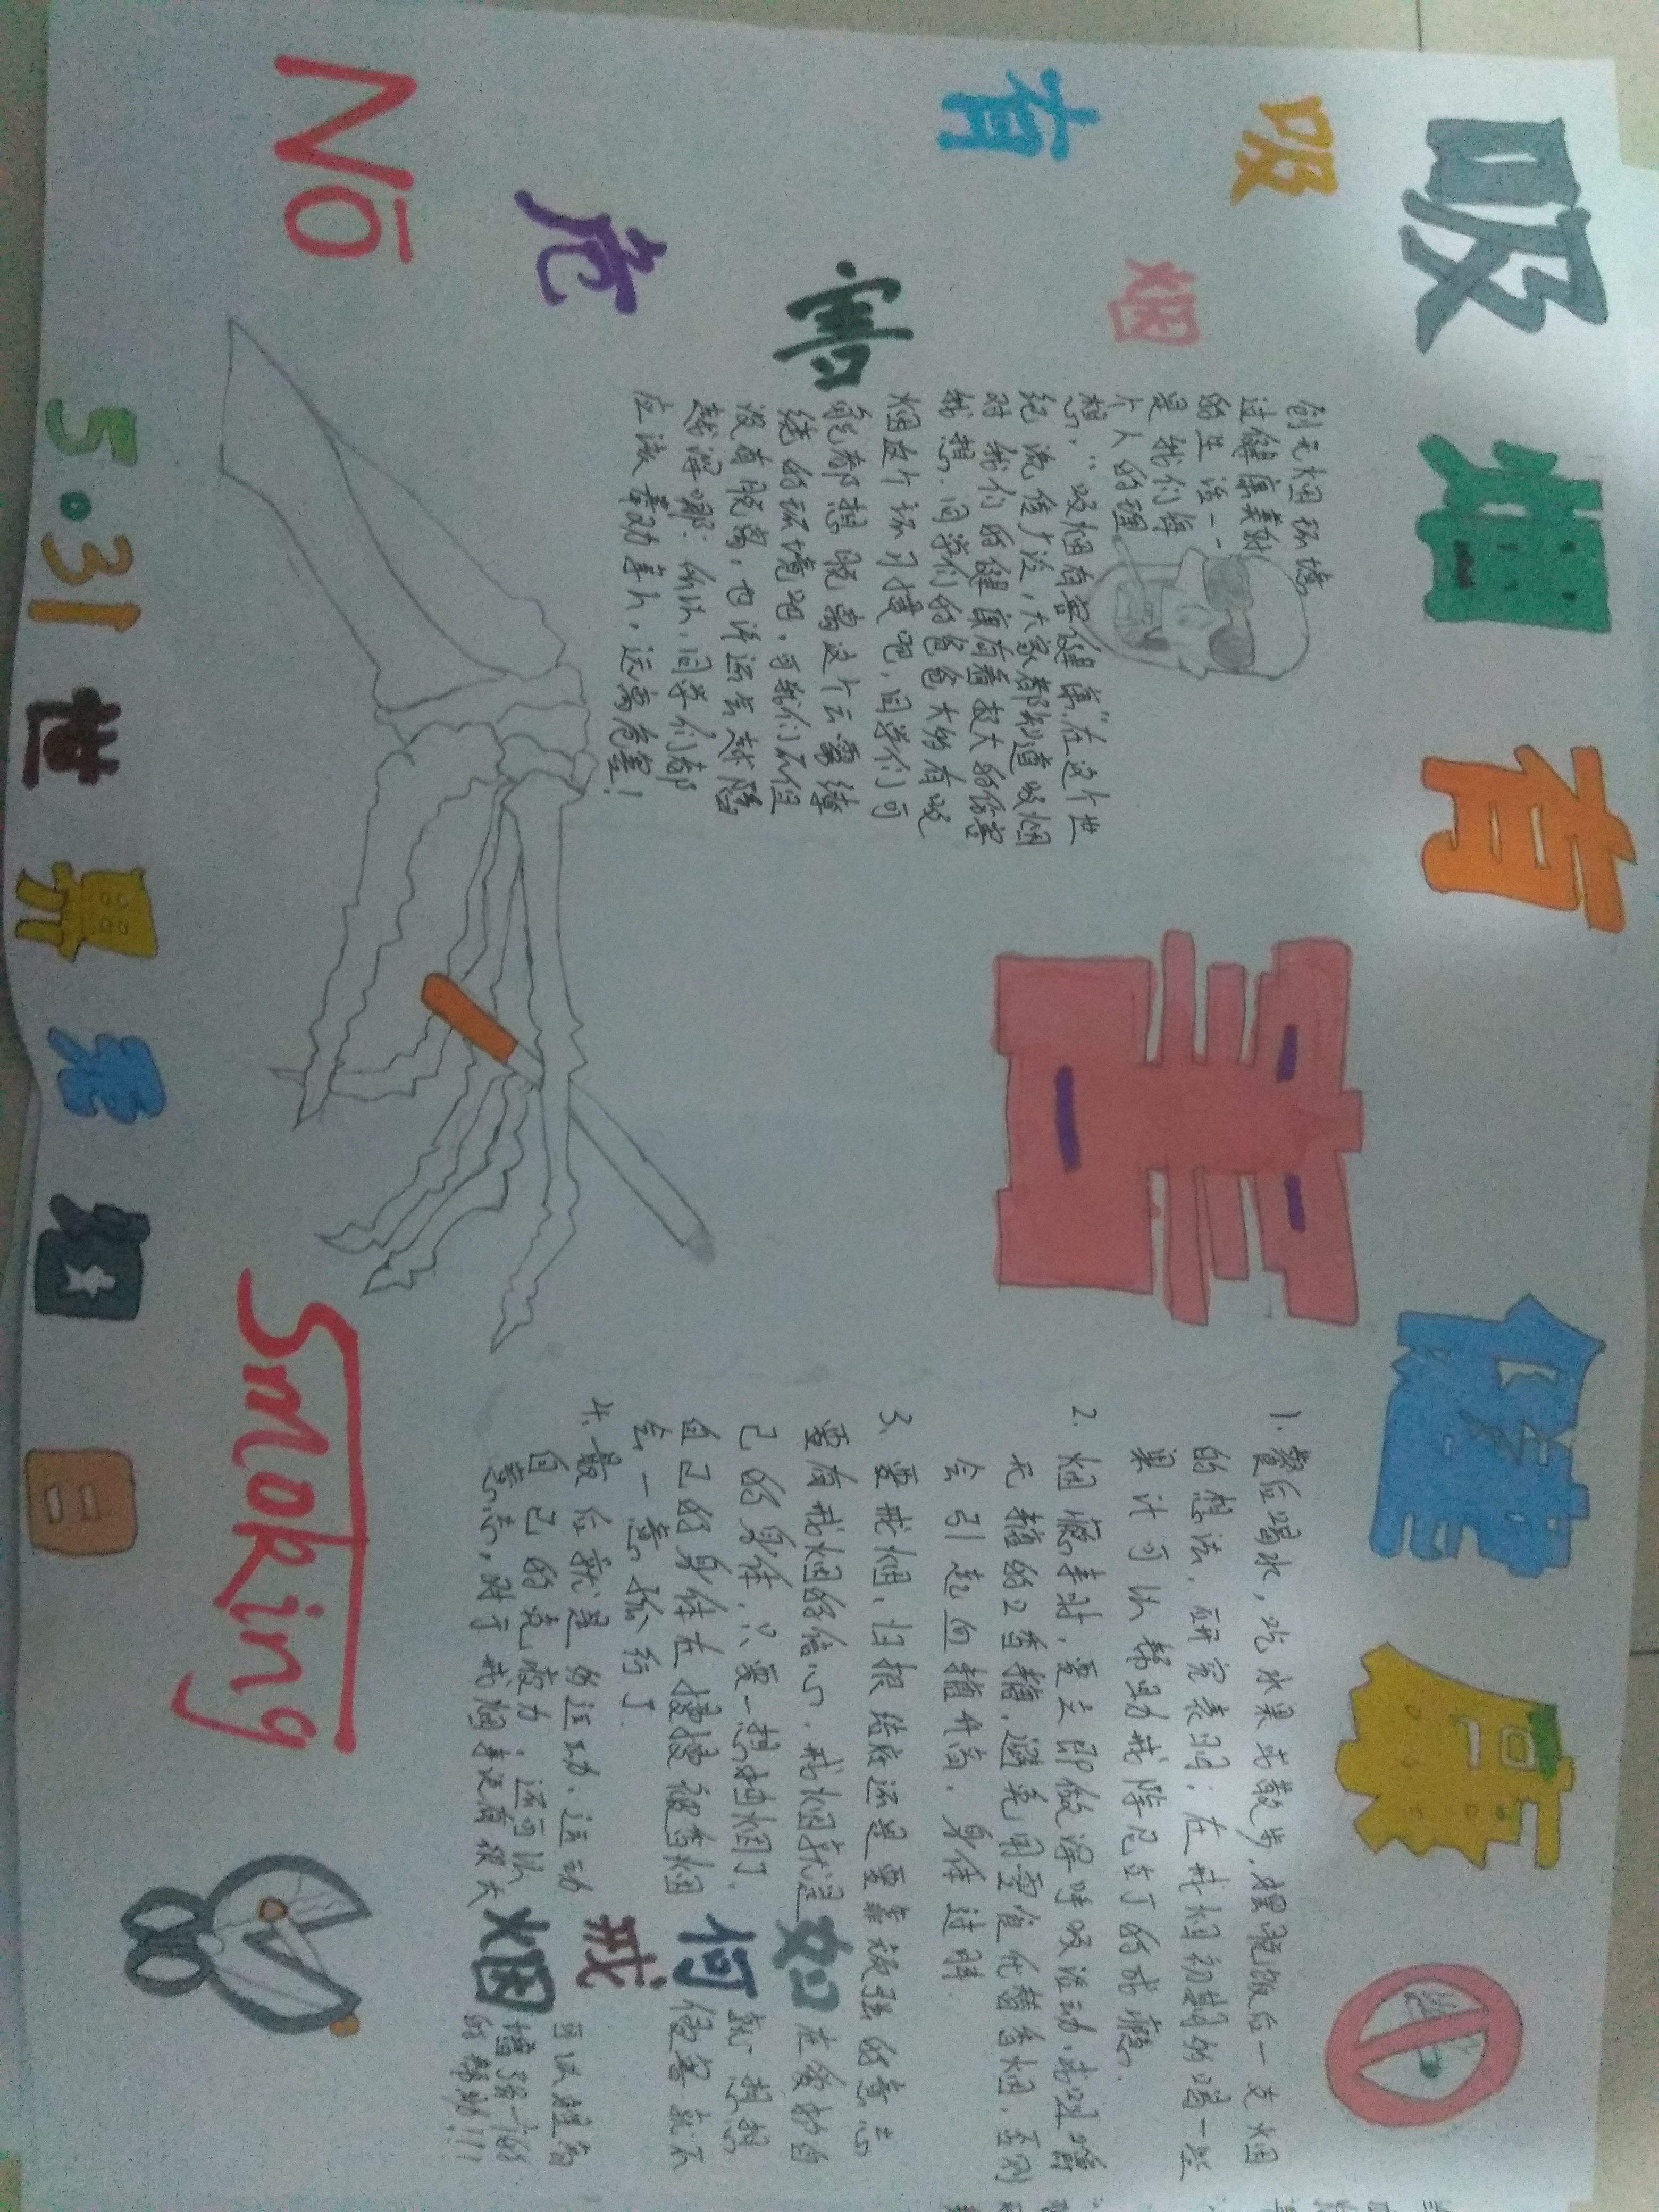 吸烟有害健康
吸烟有害
危
创无烟环境
过健康美好
的生活一
是我们每
个人的理
想，“吸烟有害健康”在这个世
纪流传广泛，大家都知道吸烟
对我们的健康有着极大的伤害
我想，同学们的爸爸大约有吸
烟这个坏习惯吧，同学们可
能都想脱离这个云雾缭
绕的环境吧，可我们不但
没有脱离，也许还会越陷
越深哪，所以，同学们都
应该奉劝亲人，远离危害！
1.餐后喝水，吃水果或散步，摆脱饭后一支烟
的想法，研究表明：在戒烟初期的喝一些
果汁可以帮助戒除尼古丁的成瘾。
2.烟瘾来时，要立即做深呼吸活动，或咀嚼
无糖的口香糖，避免用零食代替香烟，否则
会引起血糖升高，身体过胖.
3.要戒烟，归根结底还是要靠顽强的意志
要有戒烟的信心，戒烟就是在救助自
己的身体，只要一想抽烟了，就想想
自己的身体在慢慢被香烟侵害就不
会一意孤行了.
4.最后就是的运动，运动可以提高
自己的免疫力，还可以增强一个的
意志，对于戒烟来说有很大的帮助!!!
如何戒烟
No
Smoking
5.31世界无烟日